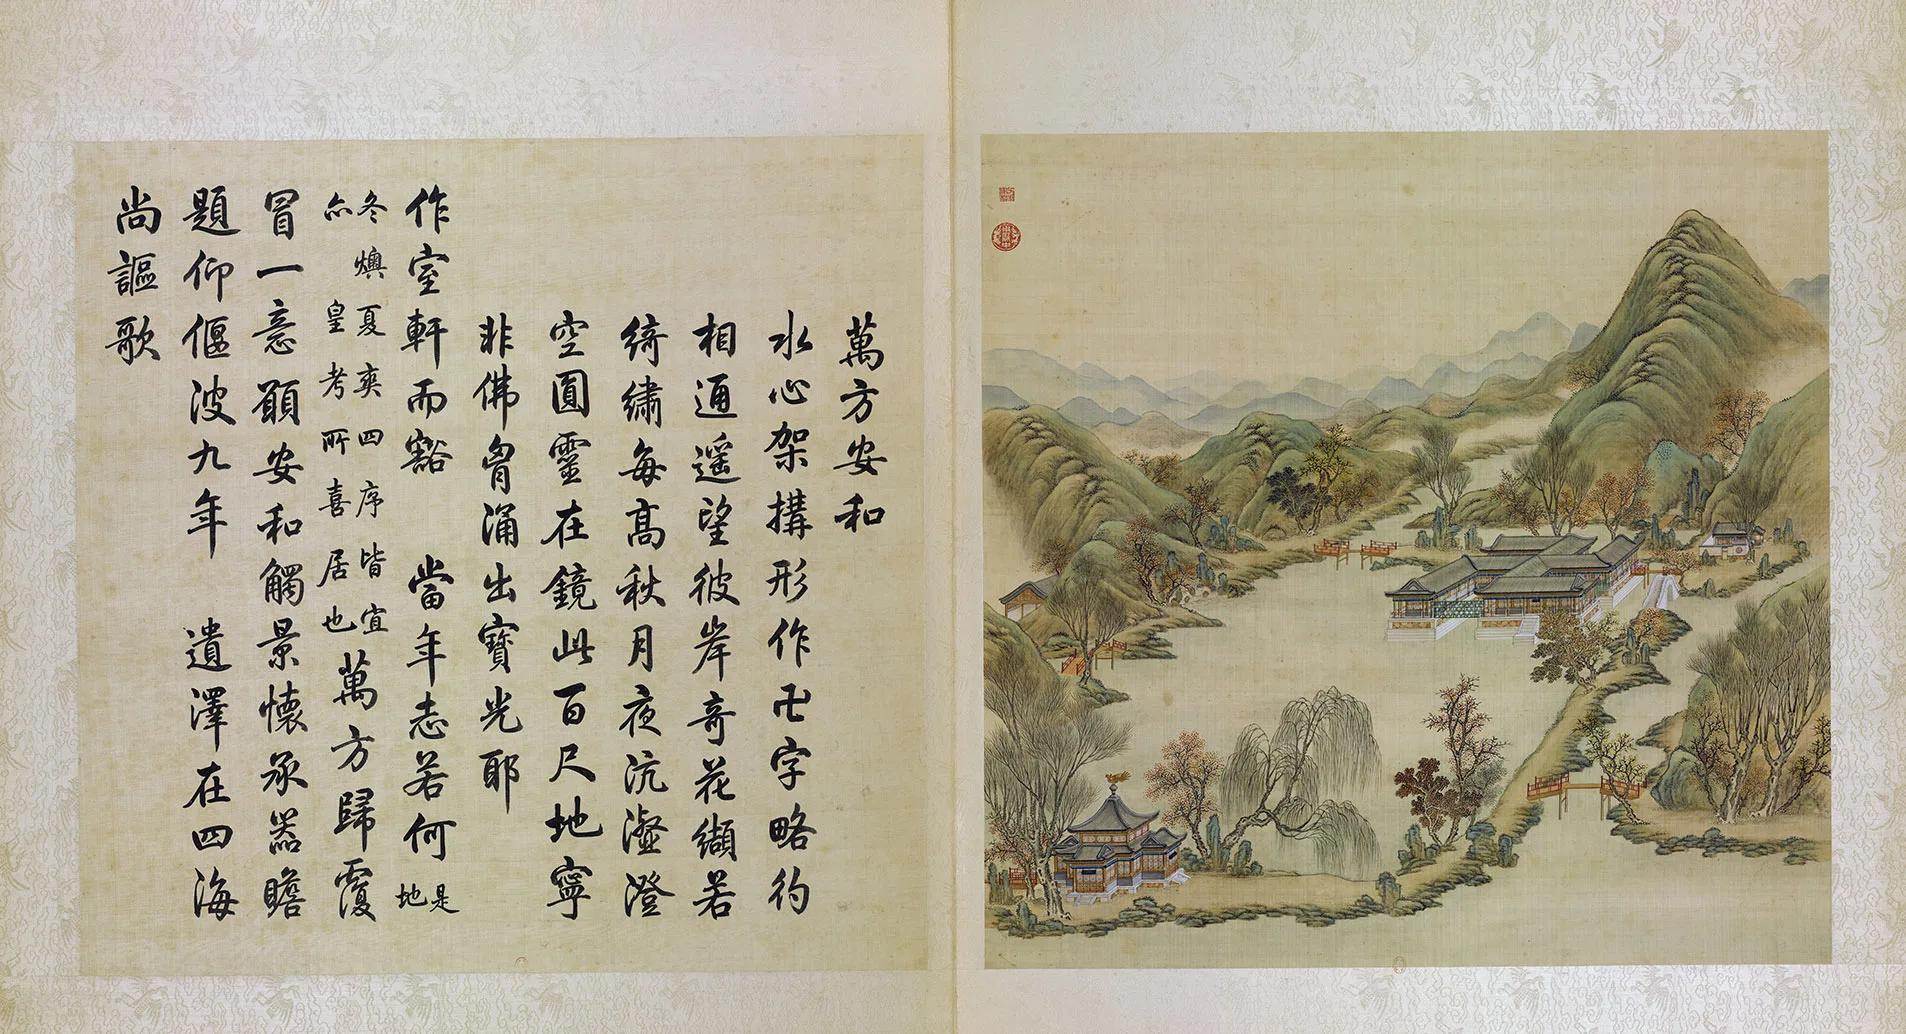 萬方安和
水心架搆形作卍字略彴
相通遥望彼岸奇花纈若
綺繡每髙秋月夜沆瀣澄
空圓靈在鏡此百尺地寧
非佛胷涌出寶光耶
作室軒而豁 當年志若何 是地
冬燠夏爽四序皆宜
亦 皇考所喜居也
萬方歸覆
冒一意願安和觸景懷承器瞻
題仰偃波九年 遺澤在四海
尚謳歌